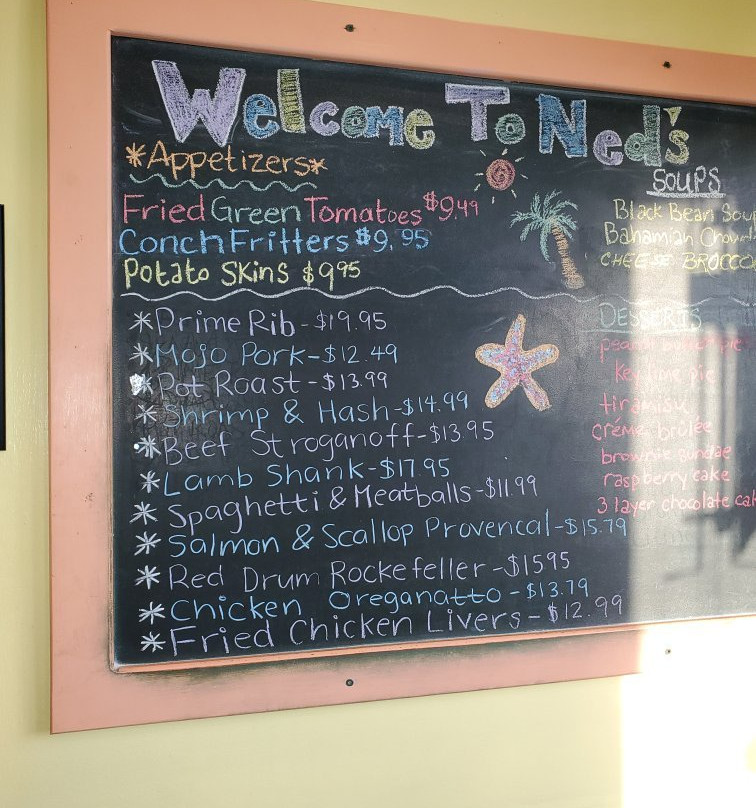 Welcome To Ned's
*Appetizers*
Fried Green Tomatoes $9.49
Conch Fritters $9.95
Potato Skins $9.95
SOUPS
Black Bean
Bahamian
CHEESE
*Prime Rib-$19.95
*Mojo Pork-$12.49
*Pot Roast-$13.99
*Shrimp & Hash-$14.99
*Beef Stroganoff-$13.95
*Lamb Shank-$17.95
*Spaghetti & Meatballs-$11.99
*Salmon & Scallop Provencal-$15.79
*Red Drum Rockefeller-$15.95
*Chicken Oreganatto-$13.79
*Fried Chicken Livers-$12.99
DESSERTS
peanut butter pie
Key lime pie
tiramisu
créme brûlée
brownie sundae
raspberry cake
3 layer chocolate